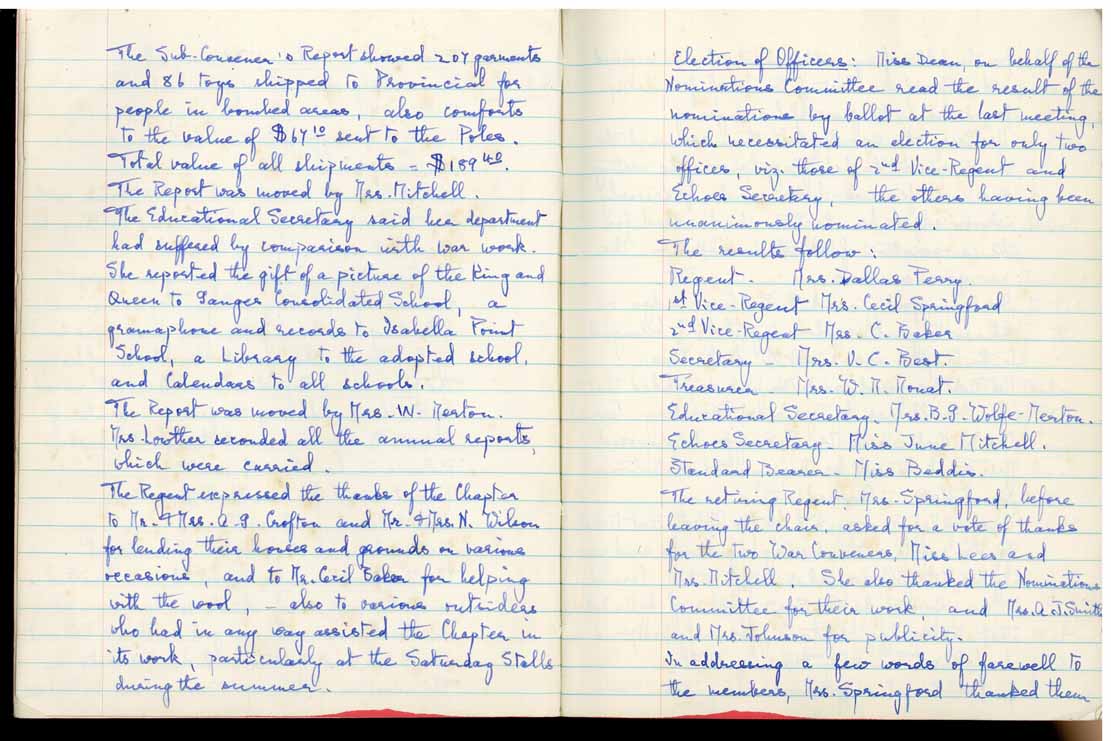 The Sub-Convener's Report showed 207 garments
and 86 toys shipped to Provincial for
people in bombed areas, also comforts
to the value of $67.10 sent to the Poles.
Total value of all shipments = $189.40.
The Report was moved by Mrs. Mitchell.
The Educational Secretary said her department
had suffered by comparison with war work.
She reported the gift of a picture of the King and
Queen to Ganges Consolidated School, a
gramaphone and records to Isabella Point
School, a Library to the adopted school,
and Calendars to all schools.
The Report was moved by Mrs. W. Merton.
Mrs. Lowther seconded all the annual reports,
which were carried.
The Regent expressed the thanks of the Chapter
to Mr. & Mrs. A. G. Crofton and Mr. & Mrs. N. Wilson
for lending their houses and grounds on various
occasions, and to Mr. Cecil Baker for helping
with the wool, – also to various outsiders
who had in any way assisted the Chapter in
its work, particularly at the Saturday Stalls
during the summer.
Election of Officers: Miss Dean, on behalf of the
Nominations Committee read the result of the
nominations by ballot at the last meeting,
which necessitated an election for only two
offices, viz. those of 2nd Vice-Regent and
Echoes Secretary, the others having been
unanimously nominated.
The results follow:
Regent. Mrs. Dallas Perry.
1st Vice-Regent Mrs. Cecil Springford
2nd Vice-Regent Mrs. C. Baker
Secretary – Mrs. V. C. Best.
Treasurer – Mrs. W. M. Mouat.
Educational Secretary. Mrs. B. G. Wolfe-Merton.
Echoes Secretary – Miss June Mitchell.
Standard Bearer – Miss Beddis.
The retiring Regent, Mrs. Springford, before
leaving the chair, asked for a vote of thanks
for the two War Conveners, Miss Lees and
Mrs. Mitchell. She also thanked the Nominations
Committee for their work, and Mrs. A. J. Smith
and Mrs. Johnson for publicity.
In addressing a few words of farewell to
the members, Mrs. Springford thanked them